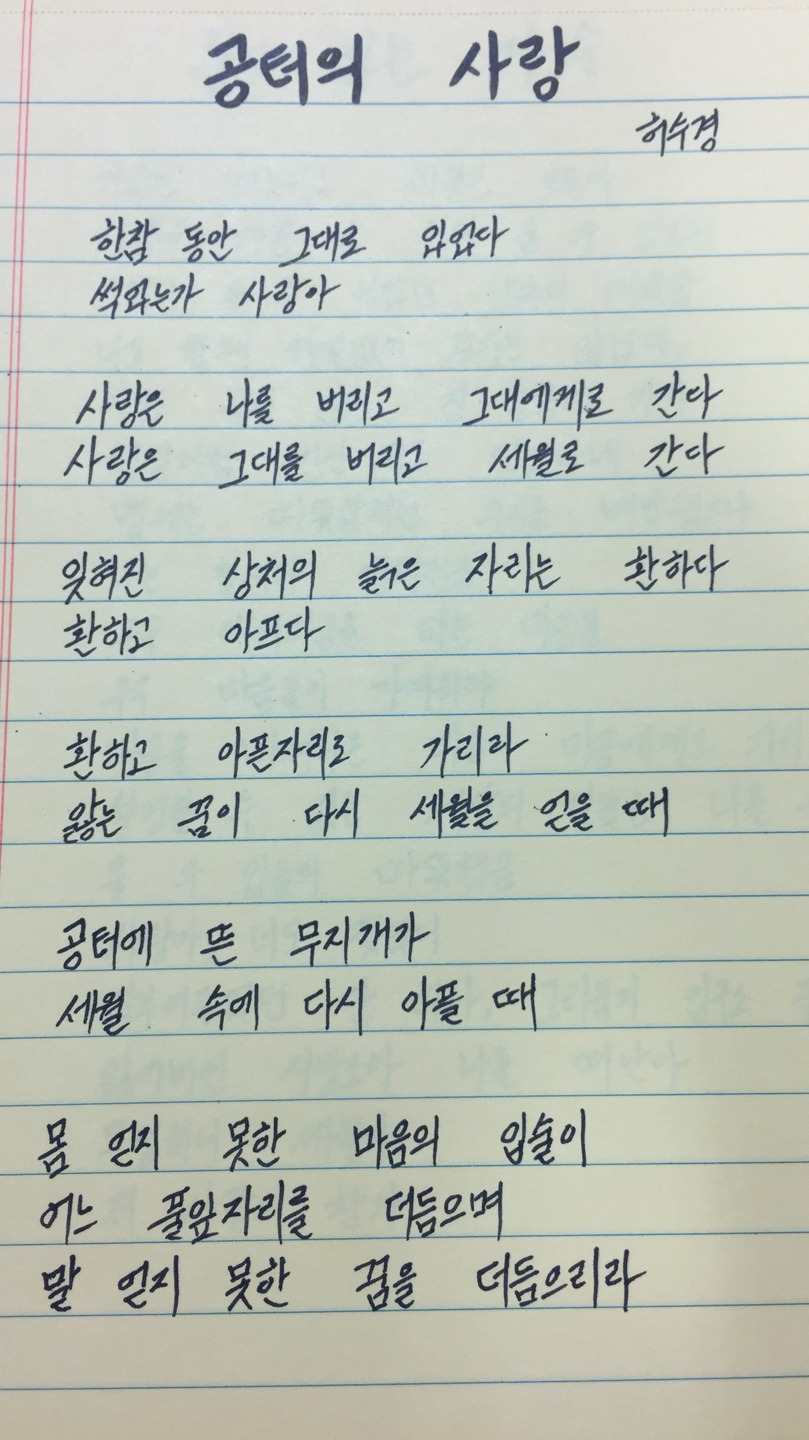 공터의 사랑
허수경
한참 동안 그대로 있었다
썩었는가 사랑아
사랑은 나를 버리고 그대에게로 간다
사랑은 그대를 버리고 세월로 간다
잊혀진 상처의 늙은 자리는 환하다
환하고 아프다
환하고 아픈자리로 가리라
앓는 꿈이 다시 세월을 얻을 때
공터에 뜬 무지개가
세월 속에 다시 아플 때
몸 얻지 못한 마음의 입술이
어느 풀잎자리를 더듬으며
말 얻지 못한 꿈을 더듬으리라